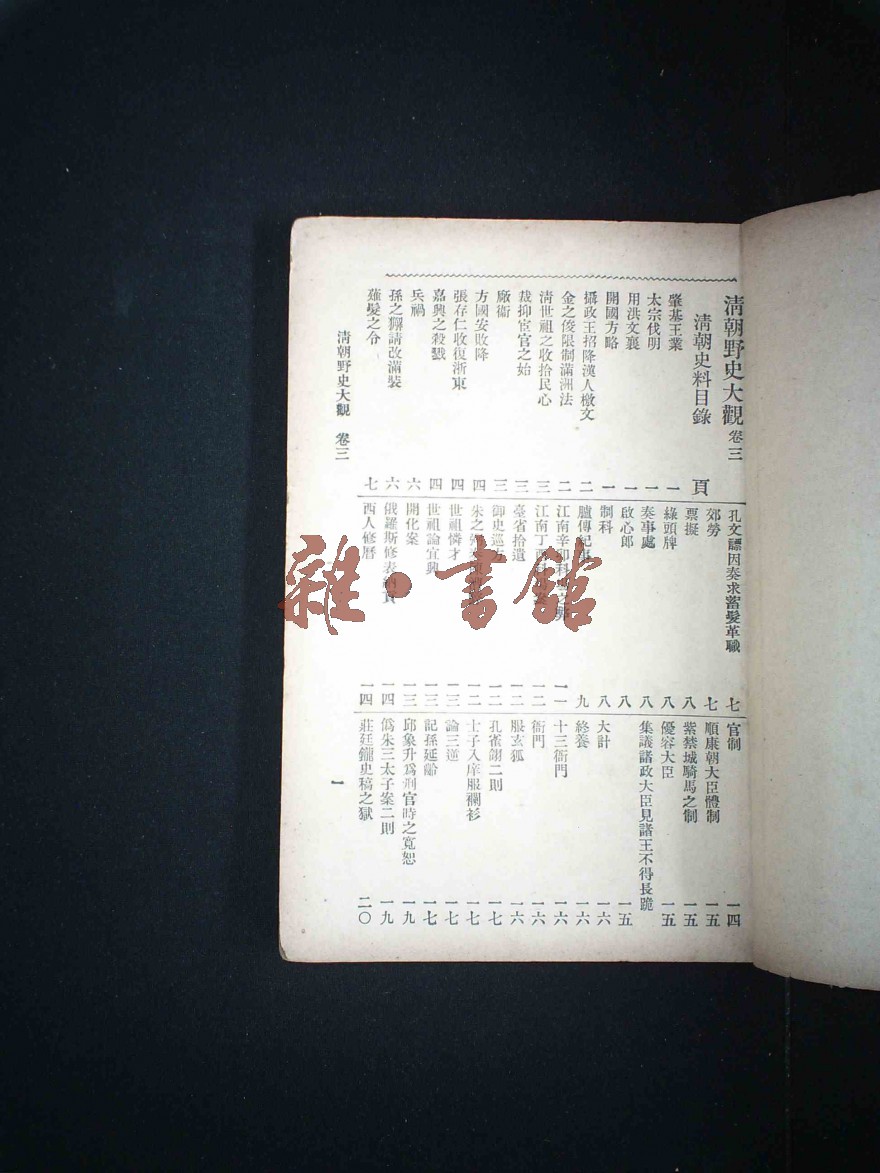 清朝野史大觀 卷三
清朝史料目錄 頁
肇基王業 一
太宗伐明 一
用洪文襄 一
開國方略 一
攝政王招降漢人檄文 二
金之俊限制滿洲法 二
清世祖之收拾民心 三
裁抑宦官之始 三
廠衞 三
方國安敗降 四
張存仁收復浙東 四
嘉興之殺戮 四
兵禍 六
孫之獬請改滿裝 六
薙髮之令 七
孔文謤因奏求蓄髮革職 七
郊勞 七
票擬 八
綠頭牌 八
奏事處 八
啟心郎 八
制科 八
臚傳紀 九
江南辛卯科 一一
江南丁酉 一二
臺省拾遺 一二
御史巡方 一二
朱之 一二
世祖憐才 一三
世祖論宜興 一三
開化案 一三
俄羅斯修表納貢 一四
西人修曆 一四
官制 一四
順康朝大臣體制 一五
紫禁城騎馬之制 一五
優容大臣 一五
集議諸政大臣見諸王不得長跪 一五
大計 一六
終養 一六
十三衙門 一六
衙門 一六
服玄狐 一六
孔雀翎二則 一七
士子入庠服襴衫 一七
論三逆 一七
記孫延齡 一七
邱象升爲刑官時之寬恕 一九
僞朱三太子案二則 一九
莊廷鑨史稿之獄 二〇
清朝野史大觀 卷三
一
雜·書館